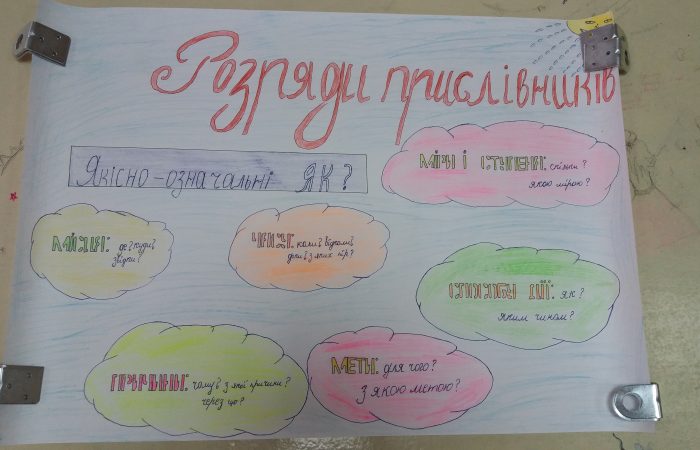 Розряди прислівників
Якісно-означальні ЯК?
Міри і ступеня: скільки?
якою мірою?
Місця: де? куди?
звідки?
Часу: коли? відколи?
доки? з яких пір?
Способу дії: як?
яким чином?
Причини: чому? з якої причини?
через що?
Мети: для чого?
З якою метою?